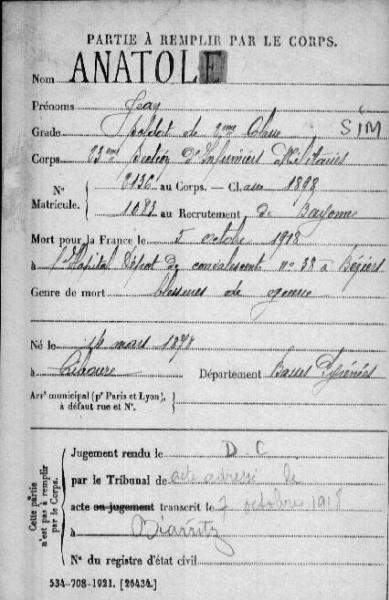 PARTIE À REMPLIR PAR LE CORPS.
Nom ANATOLE
Prénoms Jean
Grade Soldat de 2me Classe SIM
Corps 23me Section d'Infirmiers Militaires
N° Matricule. 2136 au Corps. — Classe 1898
1083 au Recrutement de Bayonne
Mort pour la France le 5 octobre 1918
à l'Hôpital Dépôt de convalescents n° 38 à Béziers
Genre de mort blessures de guerre
Né le 14 mars 1878
à Ciboure Département Basses Pyrénées
Arrt municipal (pr Paris et Lyon),
à défaut rue et N°.
Cette partie n'est pas à remplir par le Corps.
Jugement rendu le D. C.
par le Tribunal de acte adressé le
acte ou jugement transcrit le 7 octobre 1918
à Biarritz
N° du registre d'état civil
534-708-1921. [26434.]